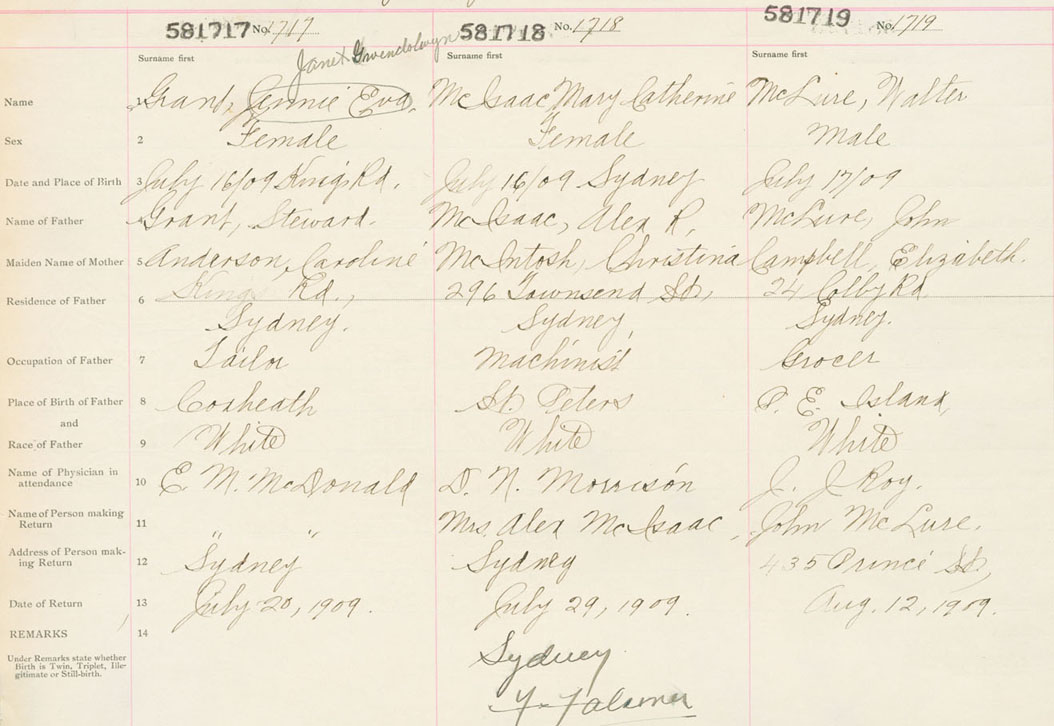 581717 No. 1717 581718 No. 1718 581719 No. 1719
Janet Gwendolwyn
Surname first Surname first Surname first
Name 1 Grant, Annie Eva. McIsaac Mary Catherine McLure, Walter
Sex 2 Female Female Male
Date and Place of Birth 3 July 16/09 King's Rd. July 16/09 Sydney July 17/09
Name of Father 4 Grant, Steward. McIsaac, Alex R. McLure, John
Maiden Name of Mother 5 Anderson, Caroline McIntosh, Christina Campbell, Elizabeth.
Residence of Father 6 Kings Rd., 296 Townsend St., 24 Colby Rd.
Sydney. Sydney, Sydney.
Occupation of Father 7 Tailor Machinist Grocer
Place of Birth of Father 8 Coxheath St. Peters P. E. Island,
and
Race of Father 9 White White White
Name of Physician in
attendance 10 E. M. McDonald D. N. Morrison J. J Roy.
Name of Person making
Return 11 " " Mrs. Alex McIsaac, John McLure.
Address of Person mak-
ing Return 12 Sydney Sydney 435 Prince St,
Date of Return 13 July 20, 1909. July 29, 1909. Aug. 12, 1909.
REMARKS 14
Under Remarks state whether
Birth is Twin, Triplet, Ille-
gitimate or Still-birth.
Sydney